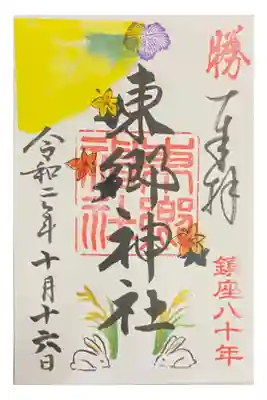 勝
奉拝
鎮座八十年
東郷神社
令和二年十月十六日